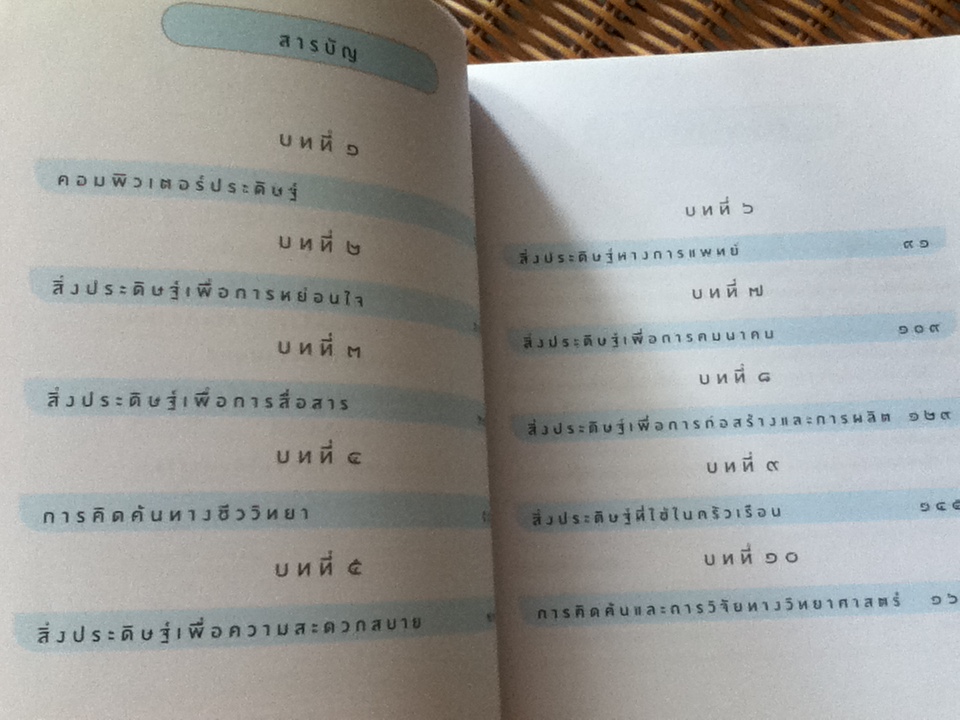 สารบัญ
บทที่ ๑
คอมพิวเตอร์ประดิษฐ์
บทที่ ๒
สิ่งประดิษฐ์เพื่อการหย่อนใจ
บทที่ ๓
สิ่งประดิษฐ์เพื่อการสื่อสาร
บทที่ ๔
การคิดค้นทางชีววิทยา
บทที่ ๕
สิ่งประดิษฐ์เพื่อความสะดวกสบาย
บทที่ ๖
สิ่งประดิษฐ์ทางการแพทย์ ๙๑
บทที่ ๗
สิ่งประดิษฐ์เพื่อการคมนาคม ๑๐๙
บทที่ ๘
สิ่งประดิษฐ์เพื่อการก่อสร้างและการผลิต ๑๒๙
บทที่ ๙
สิ่งประดิษฐ์ที่ใช้ในครัวเรือน ๑๔๕
บทที่ ๑๐
การคิดค้นและการวิจัยทางวิทยาศาสตร์